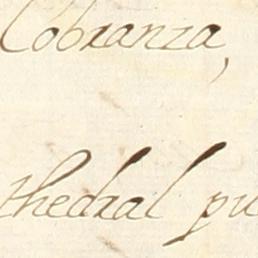 Cobranza,
thedral pu